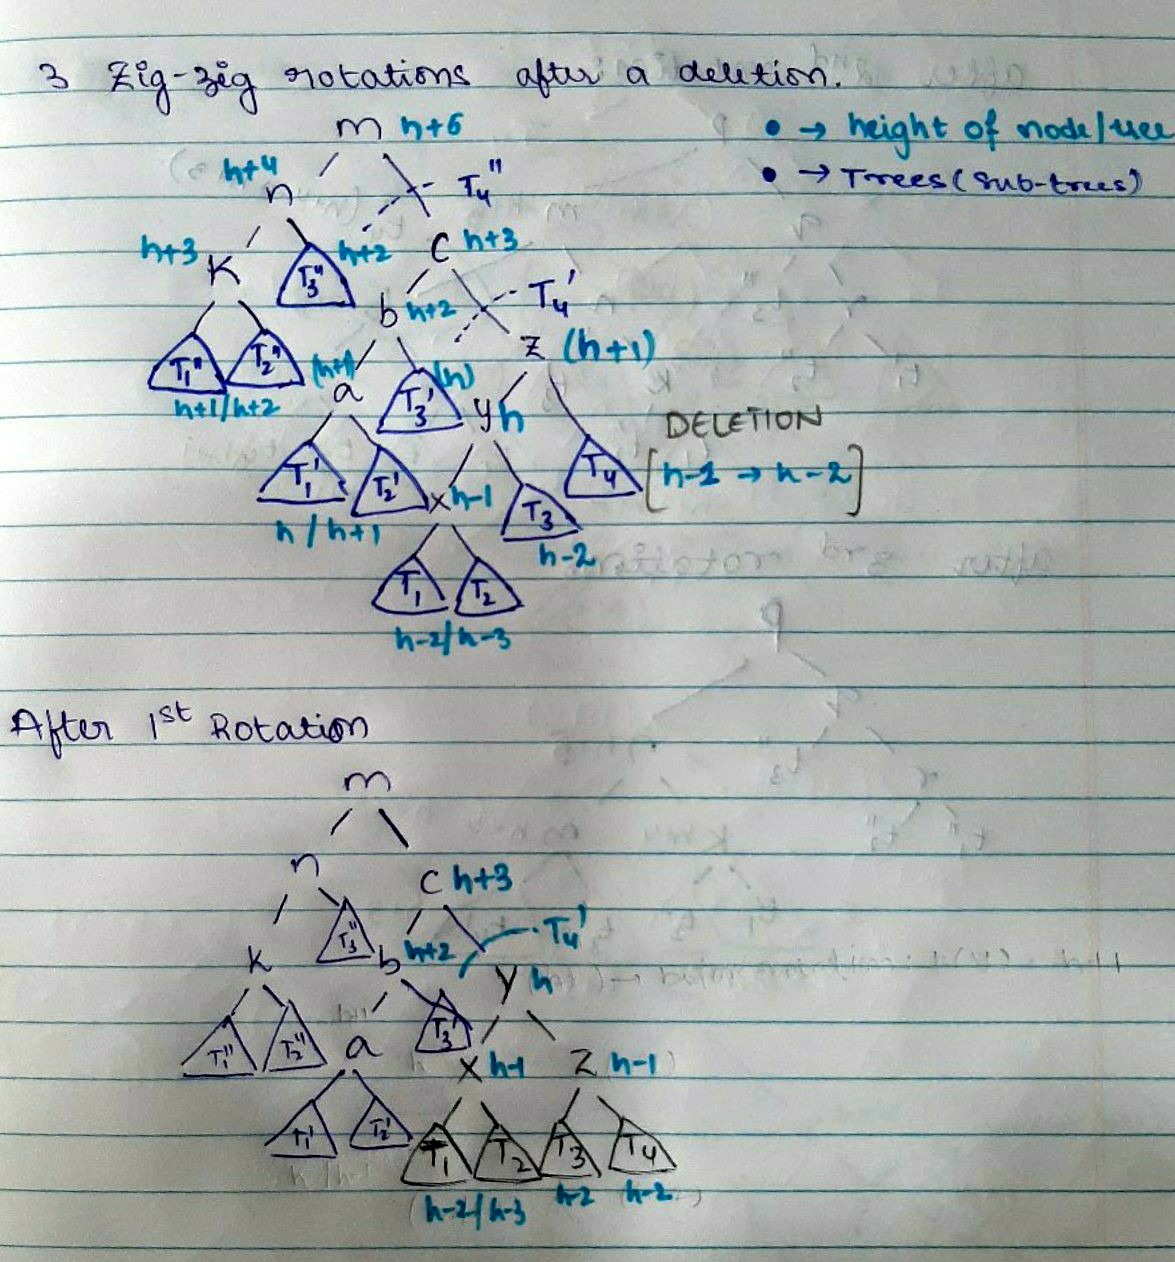 3 Zig-zig rotations after a deletion.
m h+6
• → height of node/tree
h+4
n
T4''
• → Trees (Sub-trees)
h+3
K
T3''
h+2
C h+3
b h+2
T4'
Z (h+1)
T1'' T2''
h+1/h+2
(h+1)
a
T3'
(h)
y h
DELETION
T1' T2'
x h-1
T3
T4
[h-1 → h-2]
h/h+1
h-2
T1 T2
h-2/h-3
After 1st Rotation
m
n
C h+3
T3''
T4'
K
b h+2
y h
T1'' T2''
a
T3'
x h-1
Z h-1
T1' T2'
T1 T2 T3 T4
h-2/h-3 h-2 h-2